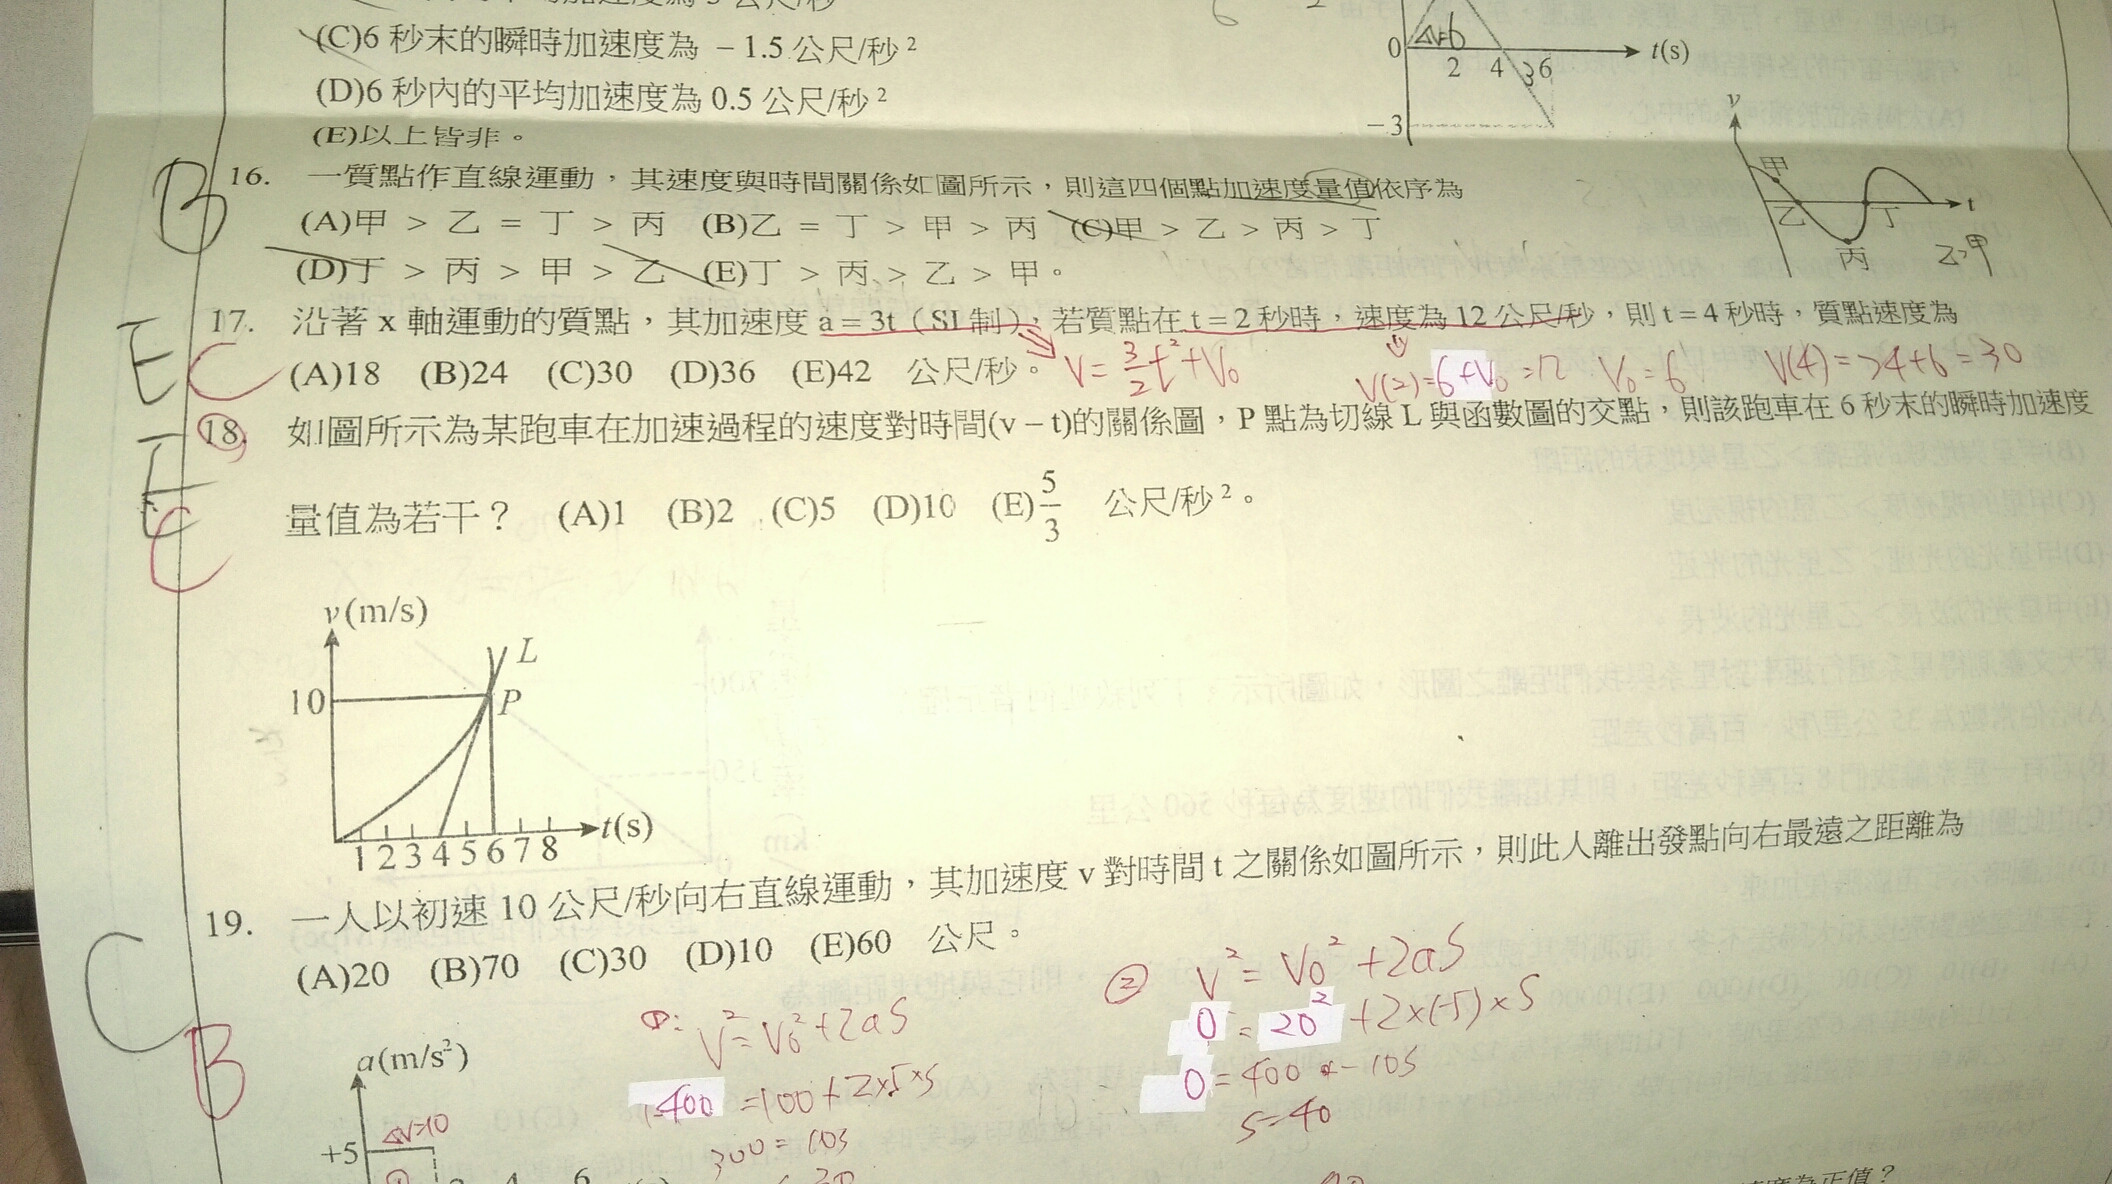 (C)6 秒末的瞬時加速度為 －1.5 公尺/秒²
(D)6 秒內的平均加速度為 0.5 公尺/秒²
(E)以上皆非。
0
2 4 6
t(s)
－3
ΔV=6
3
B
16. 一質點作直線運動，其速度與時間關係如圖所示，則這四個點加速度量值依序為
(A)甲 > 乙 = 丁 > 丙 (B)乙 = 丁 > 甲 > 丙 (C)甲 > 乙 > 丙 > 丁
(D)丁 > 丙 > 甲 > 乙 (E)丁 > 丙 > 乙 > 甲。
v
甲
乙
丙
丁
t
乙>甲
E C
17. 沿著 x 軸運動的質點，其加速度 a = 3t（SI 制），若質點在 t = 2 秒時，速度為 12 公尺/秒，則 t = 4 秒時，質點速度為
(A)18 (B)24 (C)30 (D)36 (E)42 公尺/秒。
V = 3/2 t² + V₀
V(2) = 6 + V₀ = 12 V₀ = 6
V(4) = 24 + 6 = 30
18. 如圖所示為某跑車在加速過程的速度對時間(v – t)的關係圖，P 點為切線 L 與函數圖的交點，則該跑車在 6 秒末的瞬時加速度
量值為若干？ (A)1 (B)2 (C)5 (D)10 (E)5/3 公尺/秒²。
C
v(m/s)
L
10
P
t(s)
1 2 3 4 5 6 7 8
C B
19. 一人以初速 10 公尺/秒向右直線運動，其加速度 v 對時間 t 之關係如圖所示，則此人離出發點向右最遠之距離為
(A)20 (B)70 (C)30 (D)10 (E)60 公尺。
①: V² = V₀² + 2aS
400 = 100 + 2×5×S
300 = 10S
② V² = V₀² + 2aS
0 = 20² + 2×(-5)×S
0 = 400 - 10S
S = 40
a(m/s²)
ΔV=10
+5
①
4 6